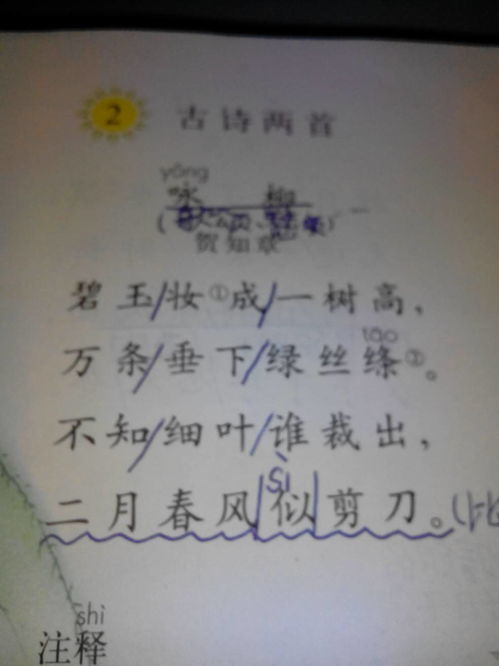 2 古诗两首
yǒng
咏 柳
贺知章
碧玉/妆①成/一树高，
tāo
万条/垂下/绿丝绦②。
不知/细叶/谁裁出，
sì
二月春风|似|剪刀。(比
shì
注释